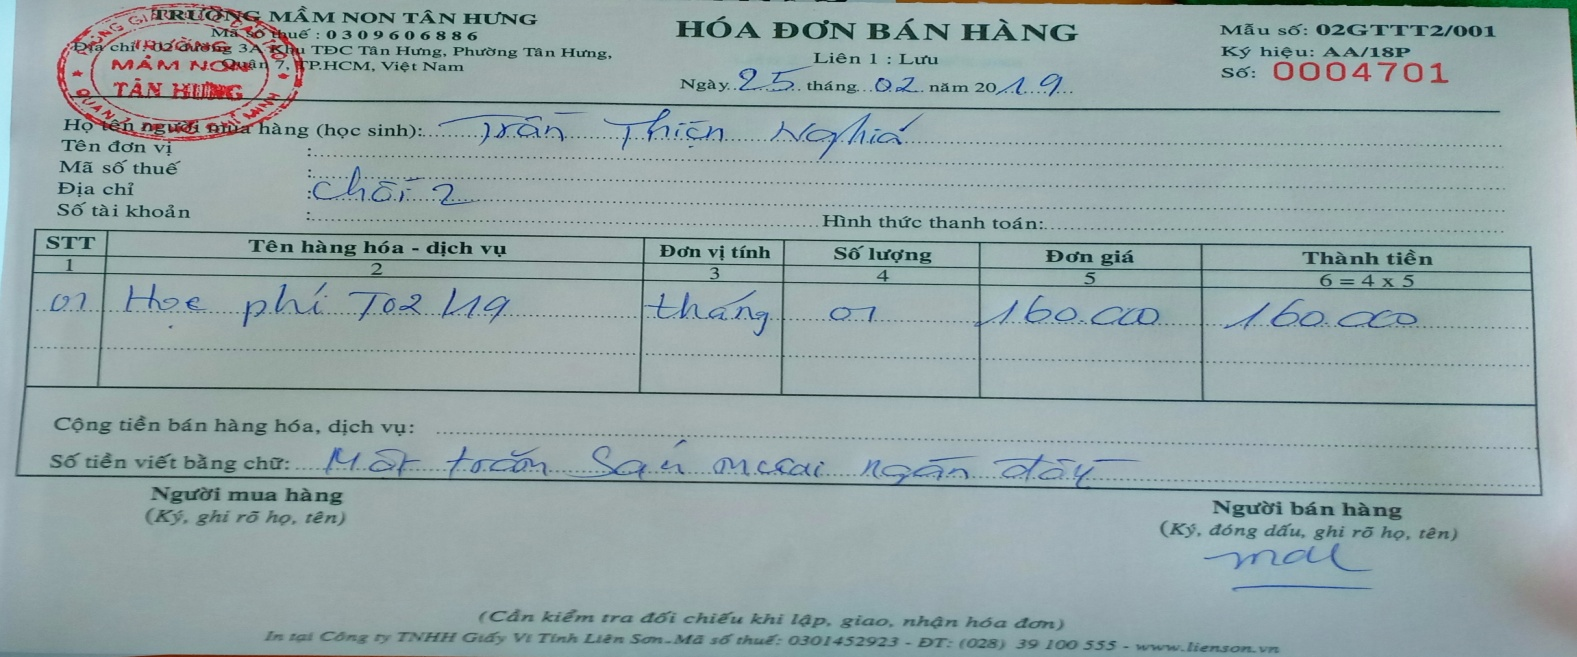 TRƯỜNG MẦM NON TÂN HƯNG
Mã số thuế : 0309606886
Địa chỉ : 02 đường 3A Khu TĐC Tân Hưng, Phường Tân Hưng,
Quận 7, TP.HCM, Việt Nam
TRƯỜNG
MẦM NON
TÂN HƯNG
HÓA ĐƠN BÁN HÀNG
Liên 1 : Lưu
Ngày 25 tháng 02 năm 2019
Mẫu số: 02GTTT2/001
Ký hiệu: AA/18P
Số: 0004701
Họ tên người mua hàng (học sinh): Trần Thiện Nghiá
Tên đơn vị :
Mã số thuế :
Địa chỉ : Chồi 2
Số tài khoản : Hình thức thanh toán:
STT Tên hàng hóa - dịch vụ Đơn vị tính Số lượng Đơn giá Thành tiền
1 2 3 4 5 6 = 4 x 5
01 Học phí T02/19 tháng 01 160.000 160.000
Cộng tiền bán hàng hóa, dịch vụ:
Số tiền viết bằng chữ: Một trăm Sáu mươi ngàn đồng
Người mua hàng
(Ký, ghi rõ họ, tên)
Người bán hàng
(Ký, đóng dấu, ghi rõ họ, tên)
(Cần kiểm tra đối chiếu khi lập, giao, nhận hóa đơn)
In tại Công ty TNHH Giấy Vi Tính Liên Sơn-Mã số thuế: 0301452923 - ĐT: (028) 39 100 555 - www.lienson.vn